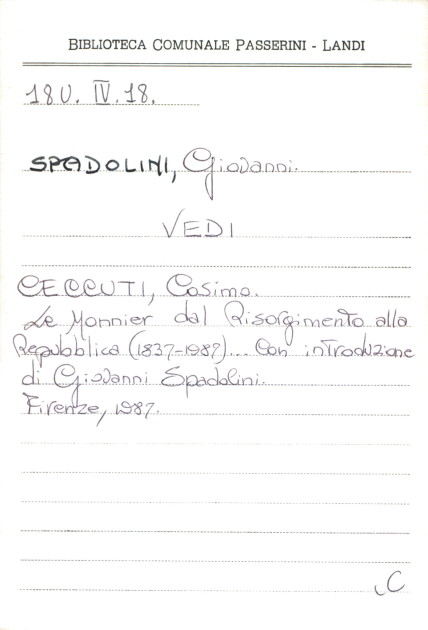 BIBLIOTECA COMUNALE PASSERINI - LANDI
18U. IV. 18.
SPADOLINI, Giovanni.
VEDI
CECCUTI, Cosimo.
Le Monnier dal Risorgimento alla
Repubblica (1837-1987)... Con introduzione
di Giovanni Spadolini.
Firenze, 1987.
C